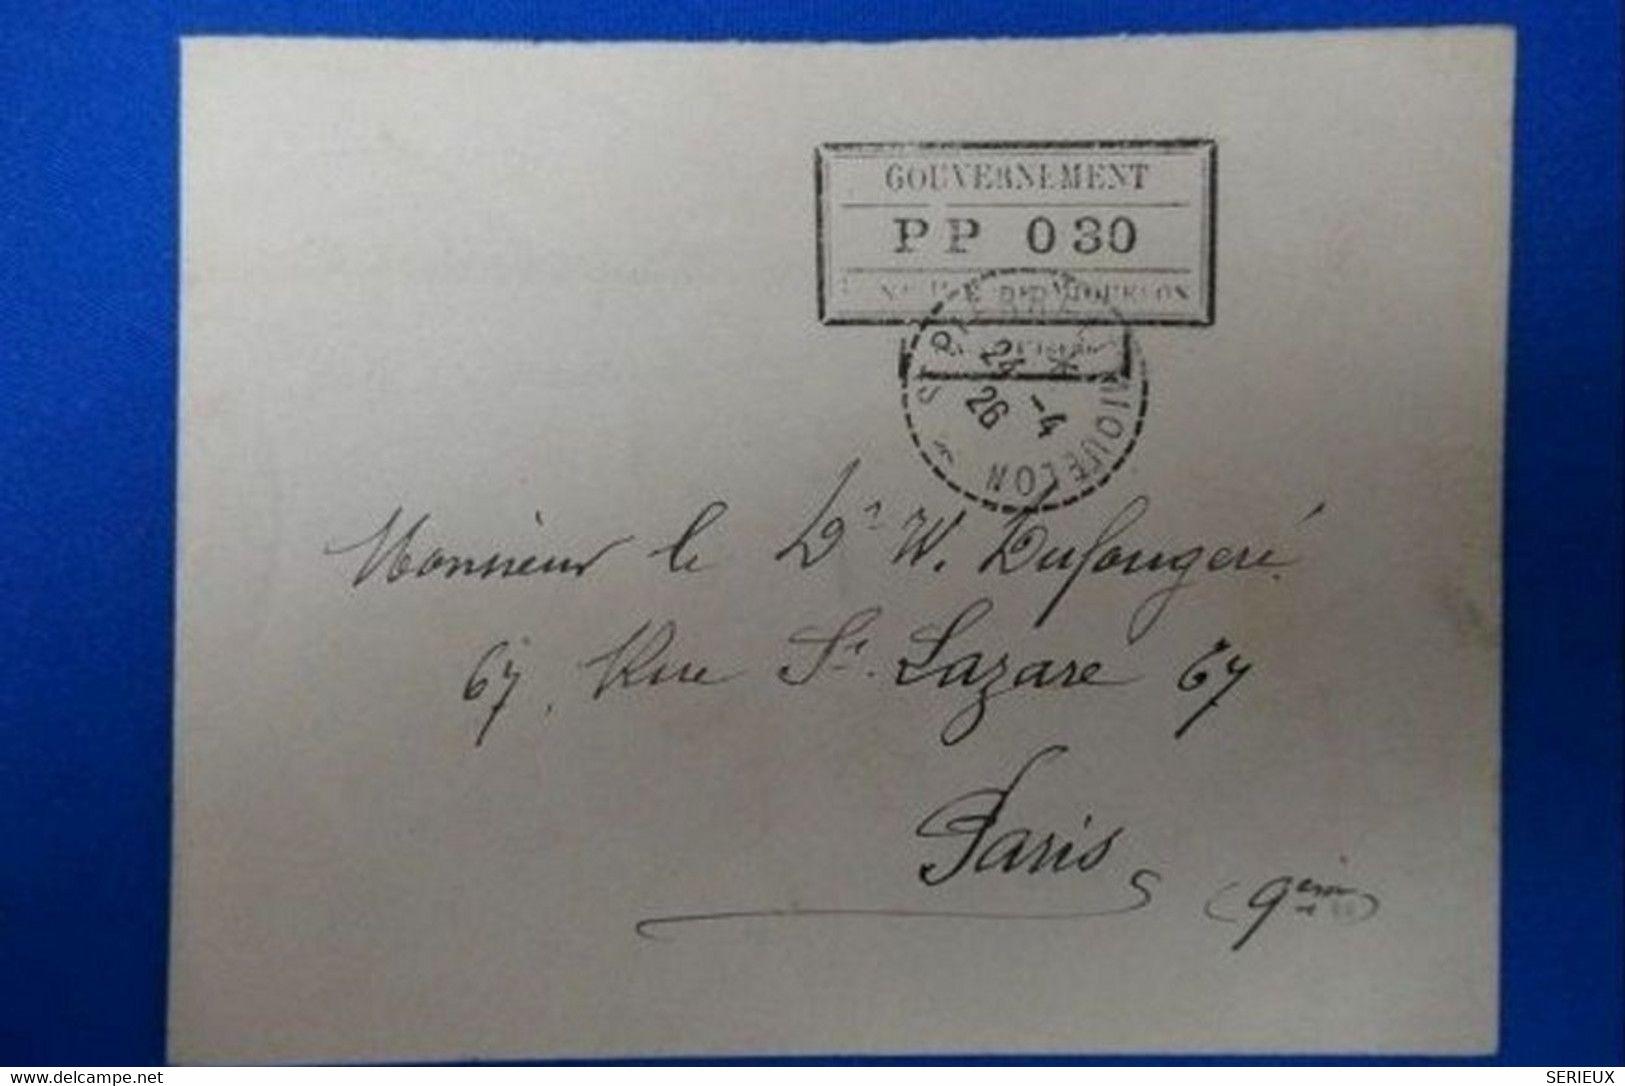 GOUVERNEMENT
PP 0 30
ST PIERRE MIQUELON
24 -4
26
Monsieur le Dr W. Dufougeré
67, Rue St. Lazare 67
Paris
(9ème)
www.delcampe.net
SERIEUX